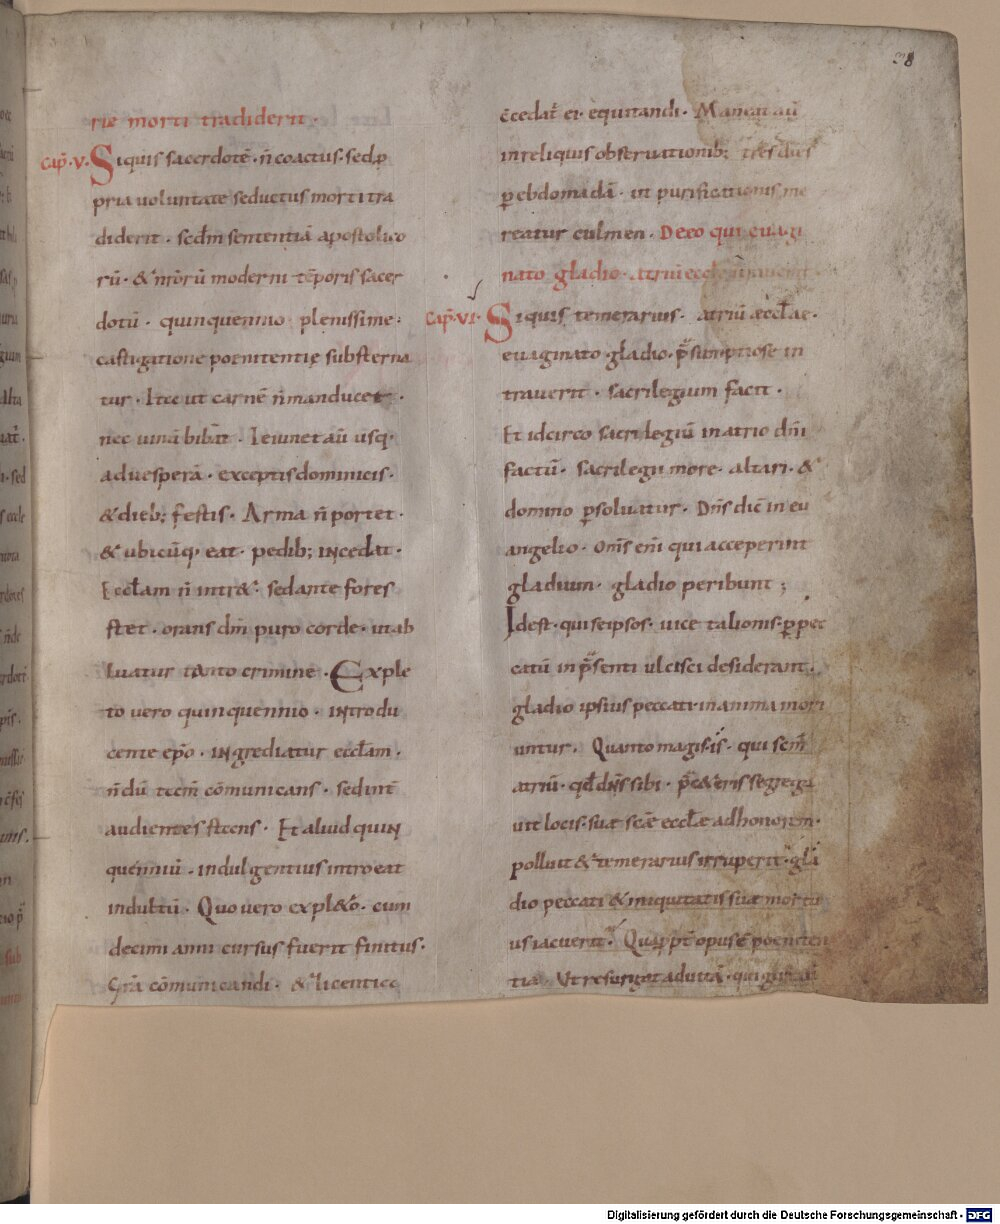 38
rie morti tradiderit·
Cap̄·V· Siquis sacerdotē· n̄ coactus· sed ꝓ
pria uoluntate seductus morti tra
diderit· scd̄m sententiā apostolico
rū· & nr̄orū moderni tēporis sacer
dotū· quinquennio· plenissime·
castigatione poenitentię substerna
tur· Ita ut carnē n̄ manducet·
nec uinū bibat· Ieiunet aū usq·
ad uesperā· exceptis dominicis·
& dieb; festis· Arma n̄ portet·
& ubicūq· eat· pedib; incedat·
Eccl̄am n̄ intr&· sed ante fores
stet· orans dm̄ puro corde· ut ab
luatur tanto crimine· Exple
to uero quinquennio· introdu
cente ep̄o· ingrediatur eccl̄am·
n̄dū tam̄ cōmunicans· sed int̄
audientes stans· Et aliud quin
quenniū· indulgentius introeat
indultū· Quo uero expl&o· cum
decimi anni cursus fuerit finitus·
Gr̄a cōmunicandi· & licentia
c̄cedat̄ ei equitandi· Maneat aū
in reliquis obseruationib; tres dies
p̱ ebdomadā· in purificationis me
reatur culmen· De eo qui euagi
nato gladio· atriū eccl̄e
Cap̄·VI· Siquis temerarius· atriū æccl̄ae·
euaginato gladio· p̄sumptiose in
trauerit· sacrilegium facit·
Et idcirco sacrilegiū in atrio dn̄i
factū· sacrilegii more· altari· &
domino p̱soluatur· Dn̄s dic̄ in eu
angelio· Om̄s eni̅ qui acceperint
gladium· gladio peribunt;
Idest· qui seipsos· uice talionis· p̱ pec
catū in p̄senti ulcisci desiderant·
gladio ipsius peccati in anima mori
untur· Quanto magis· is· qui scm̄
atriū· qd̄ dn̄s sibi· p̄ c&eris segrega
uit locis· suæ scǣ eccl̄æ ad honorem·
polluit & temerarius irruperit· gla
dio peccati & iniquitatis suæ mortu
us iacuerit· Quapp̄t opus ē poeniten
tia· Ut resurgat ad uitā· qui
Digitalisierung gefördert durch die Deutsche Forschungsgemeinschaft - DFG